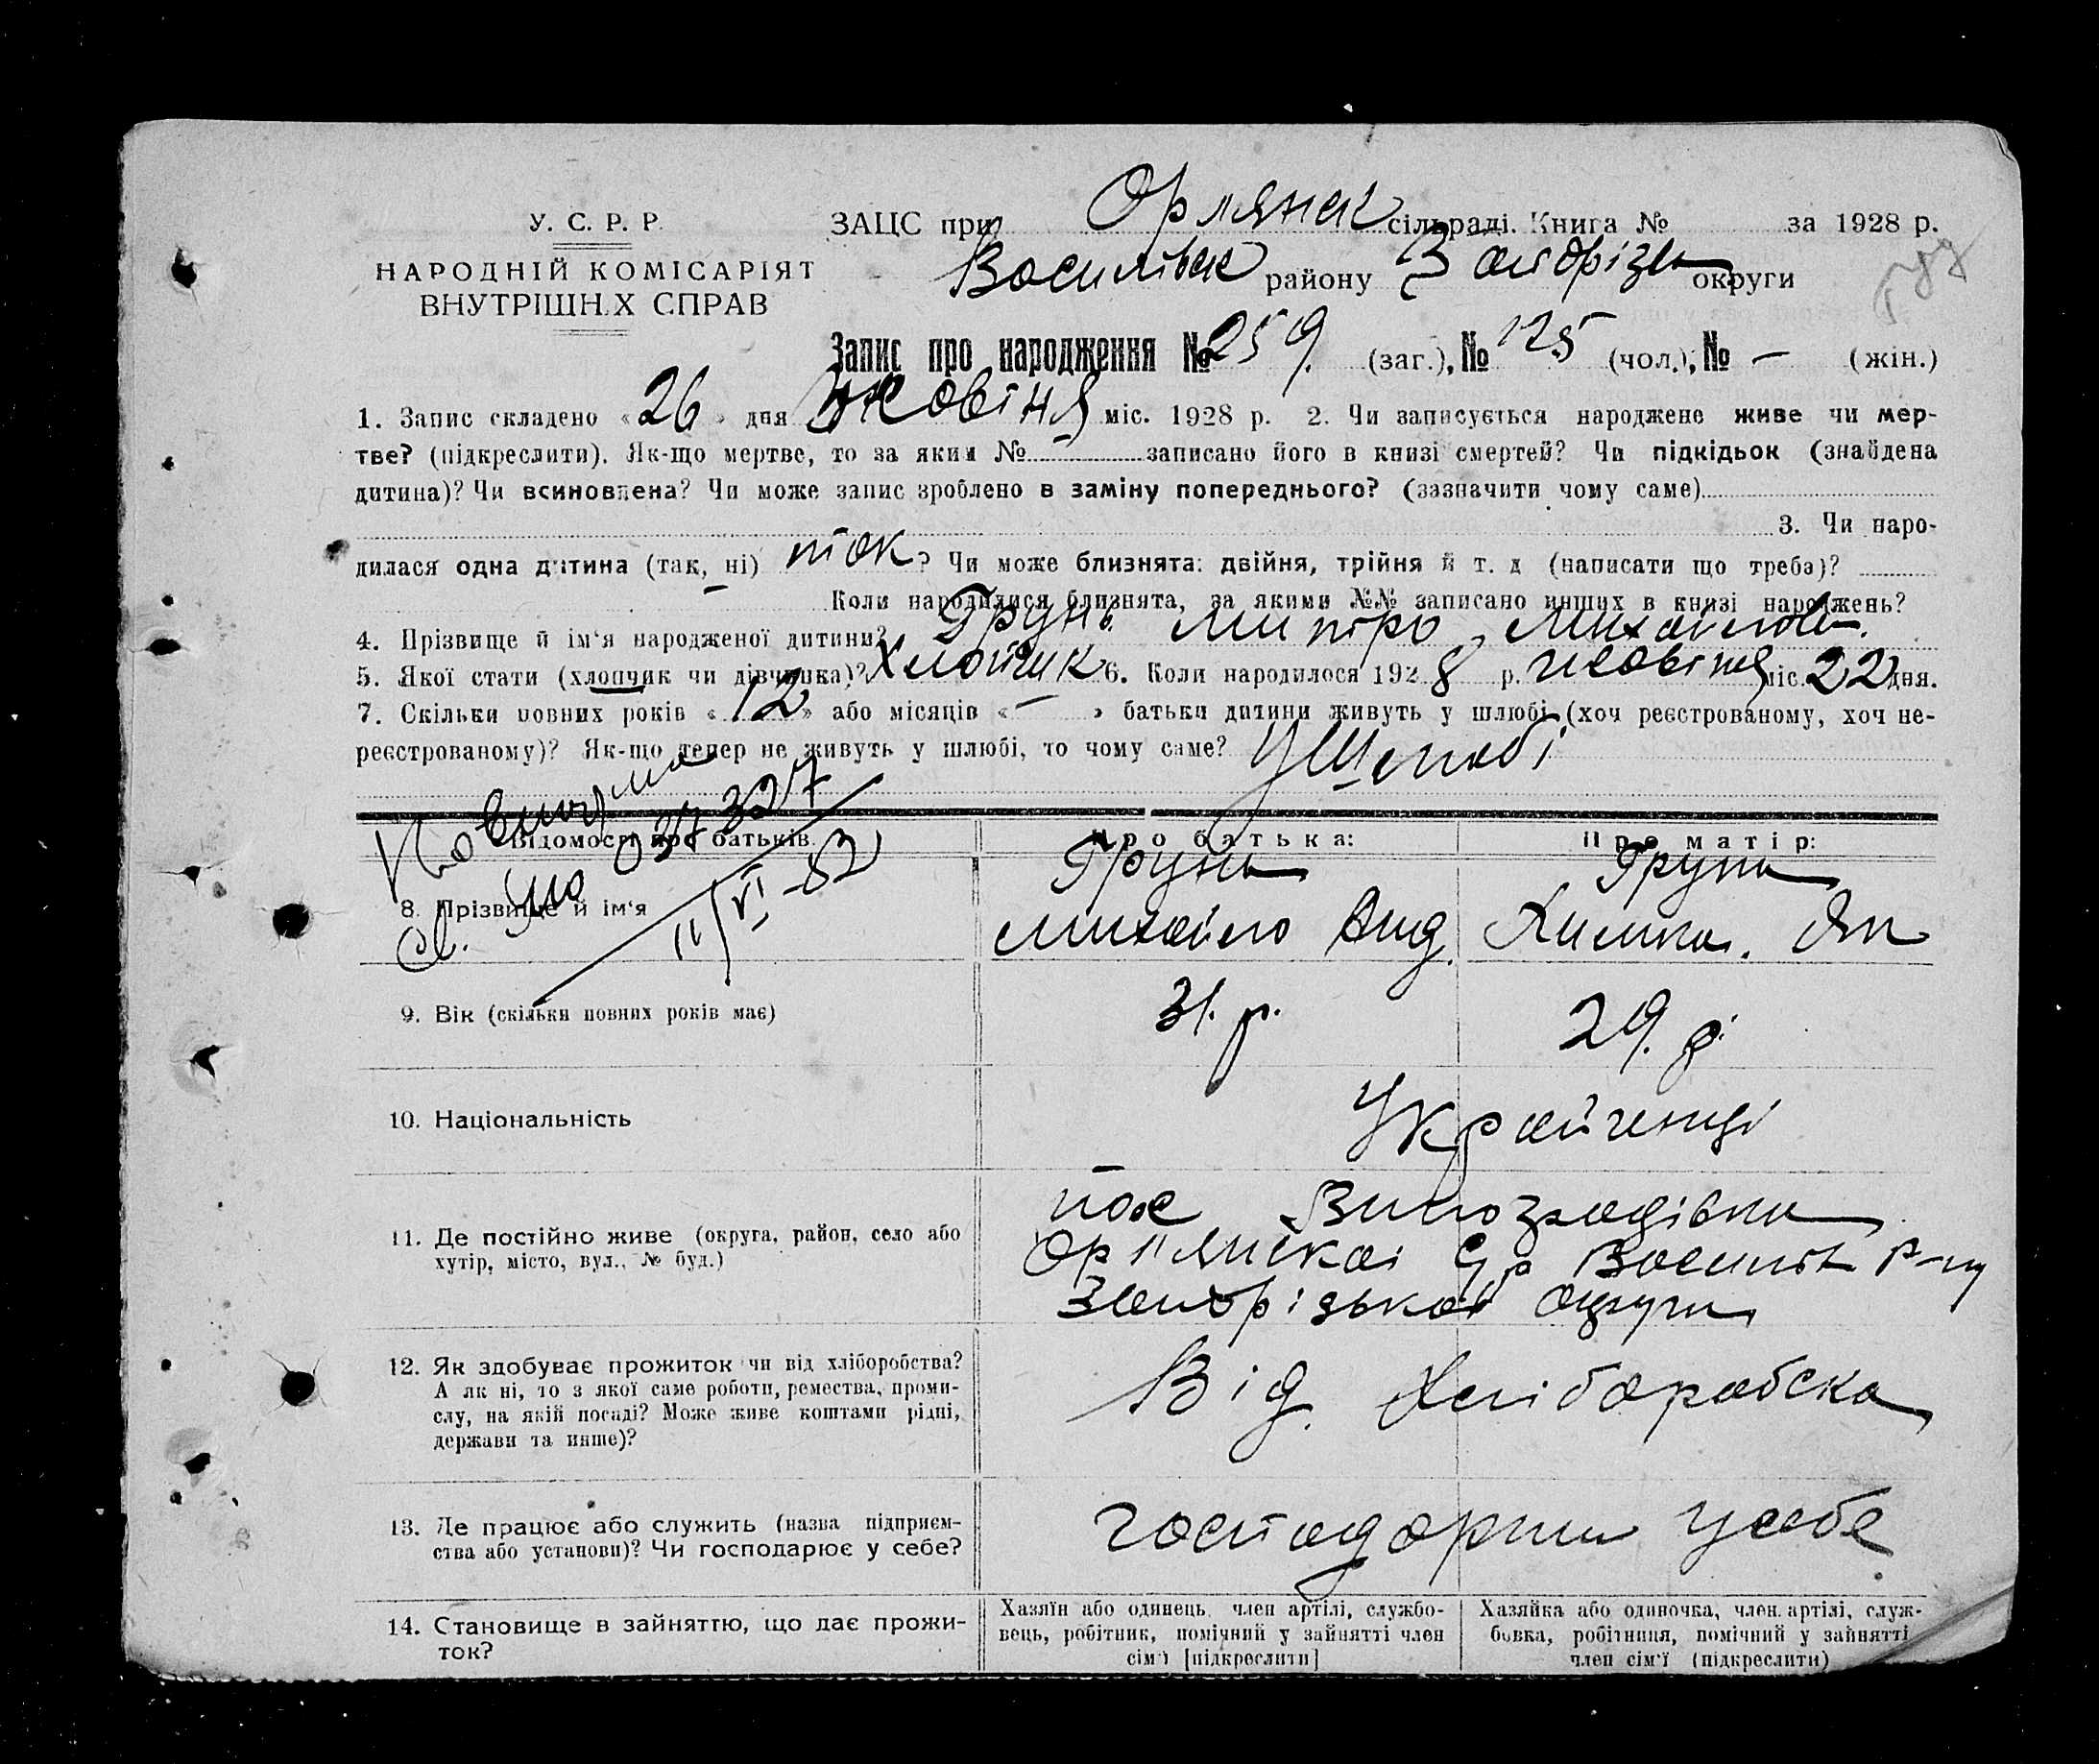 У. С. Р. Р.
НАРОДНІЙ КОМІСАРІЯТ
ВНУТРІШНІХ СПРАВ
ЗАЦС при Орлянск сільраді. Книга № за 1928 р.
Василівск району Запоріз округи
Запис про народження № 259. (заг.), № 125 (чол.); № — (жін.)
1. Запис складено «26» дня Жовтня міс. 1928 р. 2. Чи записується народжене живе чи мер-
тве? (підкреслити). Як-що мертве, то за яким № записано його в книзі смертей? Чи підкідьок (знайдена
дитина)? Чи всиновлена? Чи може запис зроблено в заміну попереднього? (зазначити чому саме)
3. Чи наро-
дилася одна дитина (так, ні) так? Чи може близнята: двійня, трійня й т. д (написати що треба)?
Коли народилися близнята, за якими №№ записано инших в книзі народжень?
4. Прізвище й ім‘я народженої дитини? Грунь Митро Михайлов.
5. Якої стати (хлопчик чи дівчинка)? Хлопчик 6. Коли народилося 1928 р. жовтня міс. 22 дня.
7. Скільки повних років «12» або місяців «—» батьки дитини живуть у шлюбі (хоч реєстрованому, хоч не-
реєстрованому)? Як-що тепер не живуть у шлюбі, то чому саме? У Шлюбі
Відомості про батьків.
Про батька:
Про матір:
037327
8. Прізвище й ім‘я
Грунь
Михайло Анд.
Грунь
Химка. Як
9. Вік (скільки повних років має)
31. р.
29. р.
10. Національність
Українці
11. Де постійно живе (округа, район, село або
хутір, місто, вул., № буд.)
пос Виноградівка
Орлянскаі С/р Василів р-ну
Запорізькоі округи
12. Як здобуває прожиток чи від хліборобства?
А як ні, то з якої саме роботи, ремества, проми-
слу, на якій посаді? Може живе коштами рідні,
держави та инше)?
Від Хлібарабска
13. Де працює або служить (назва підприєм-
ства або установи)? Чи господарює у себе?
господарює усебе
14. Становище в зайняттю, що дає прожи-
ток?
Хазяїн або одинець, член артілі, службо-
вець, робітник, помічний у зайнятті член
сім‘ї [підкреслити]
Хазяйка або одиночка, член. артілі, служ-
бовка, робітниця, помічний у зайнятті
член сім‘ї (підкреслити)